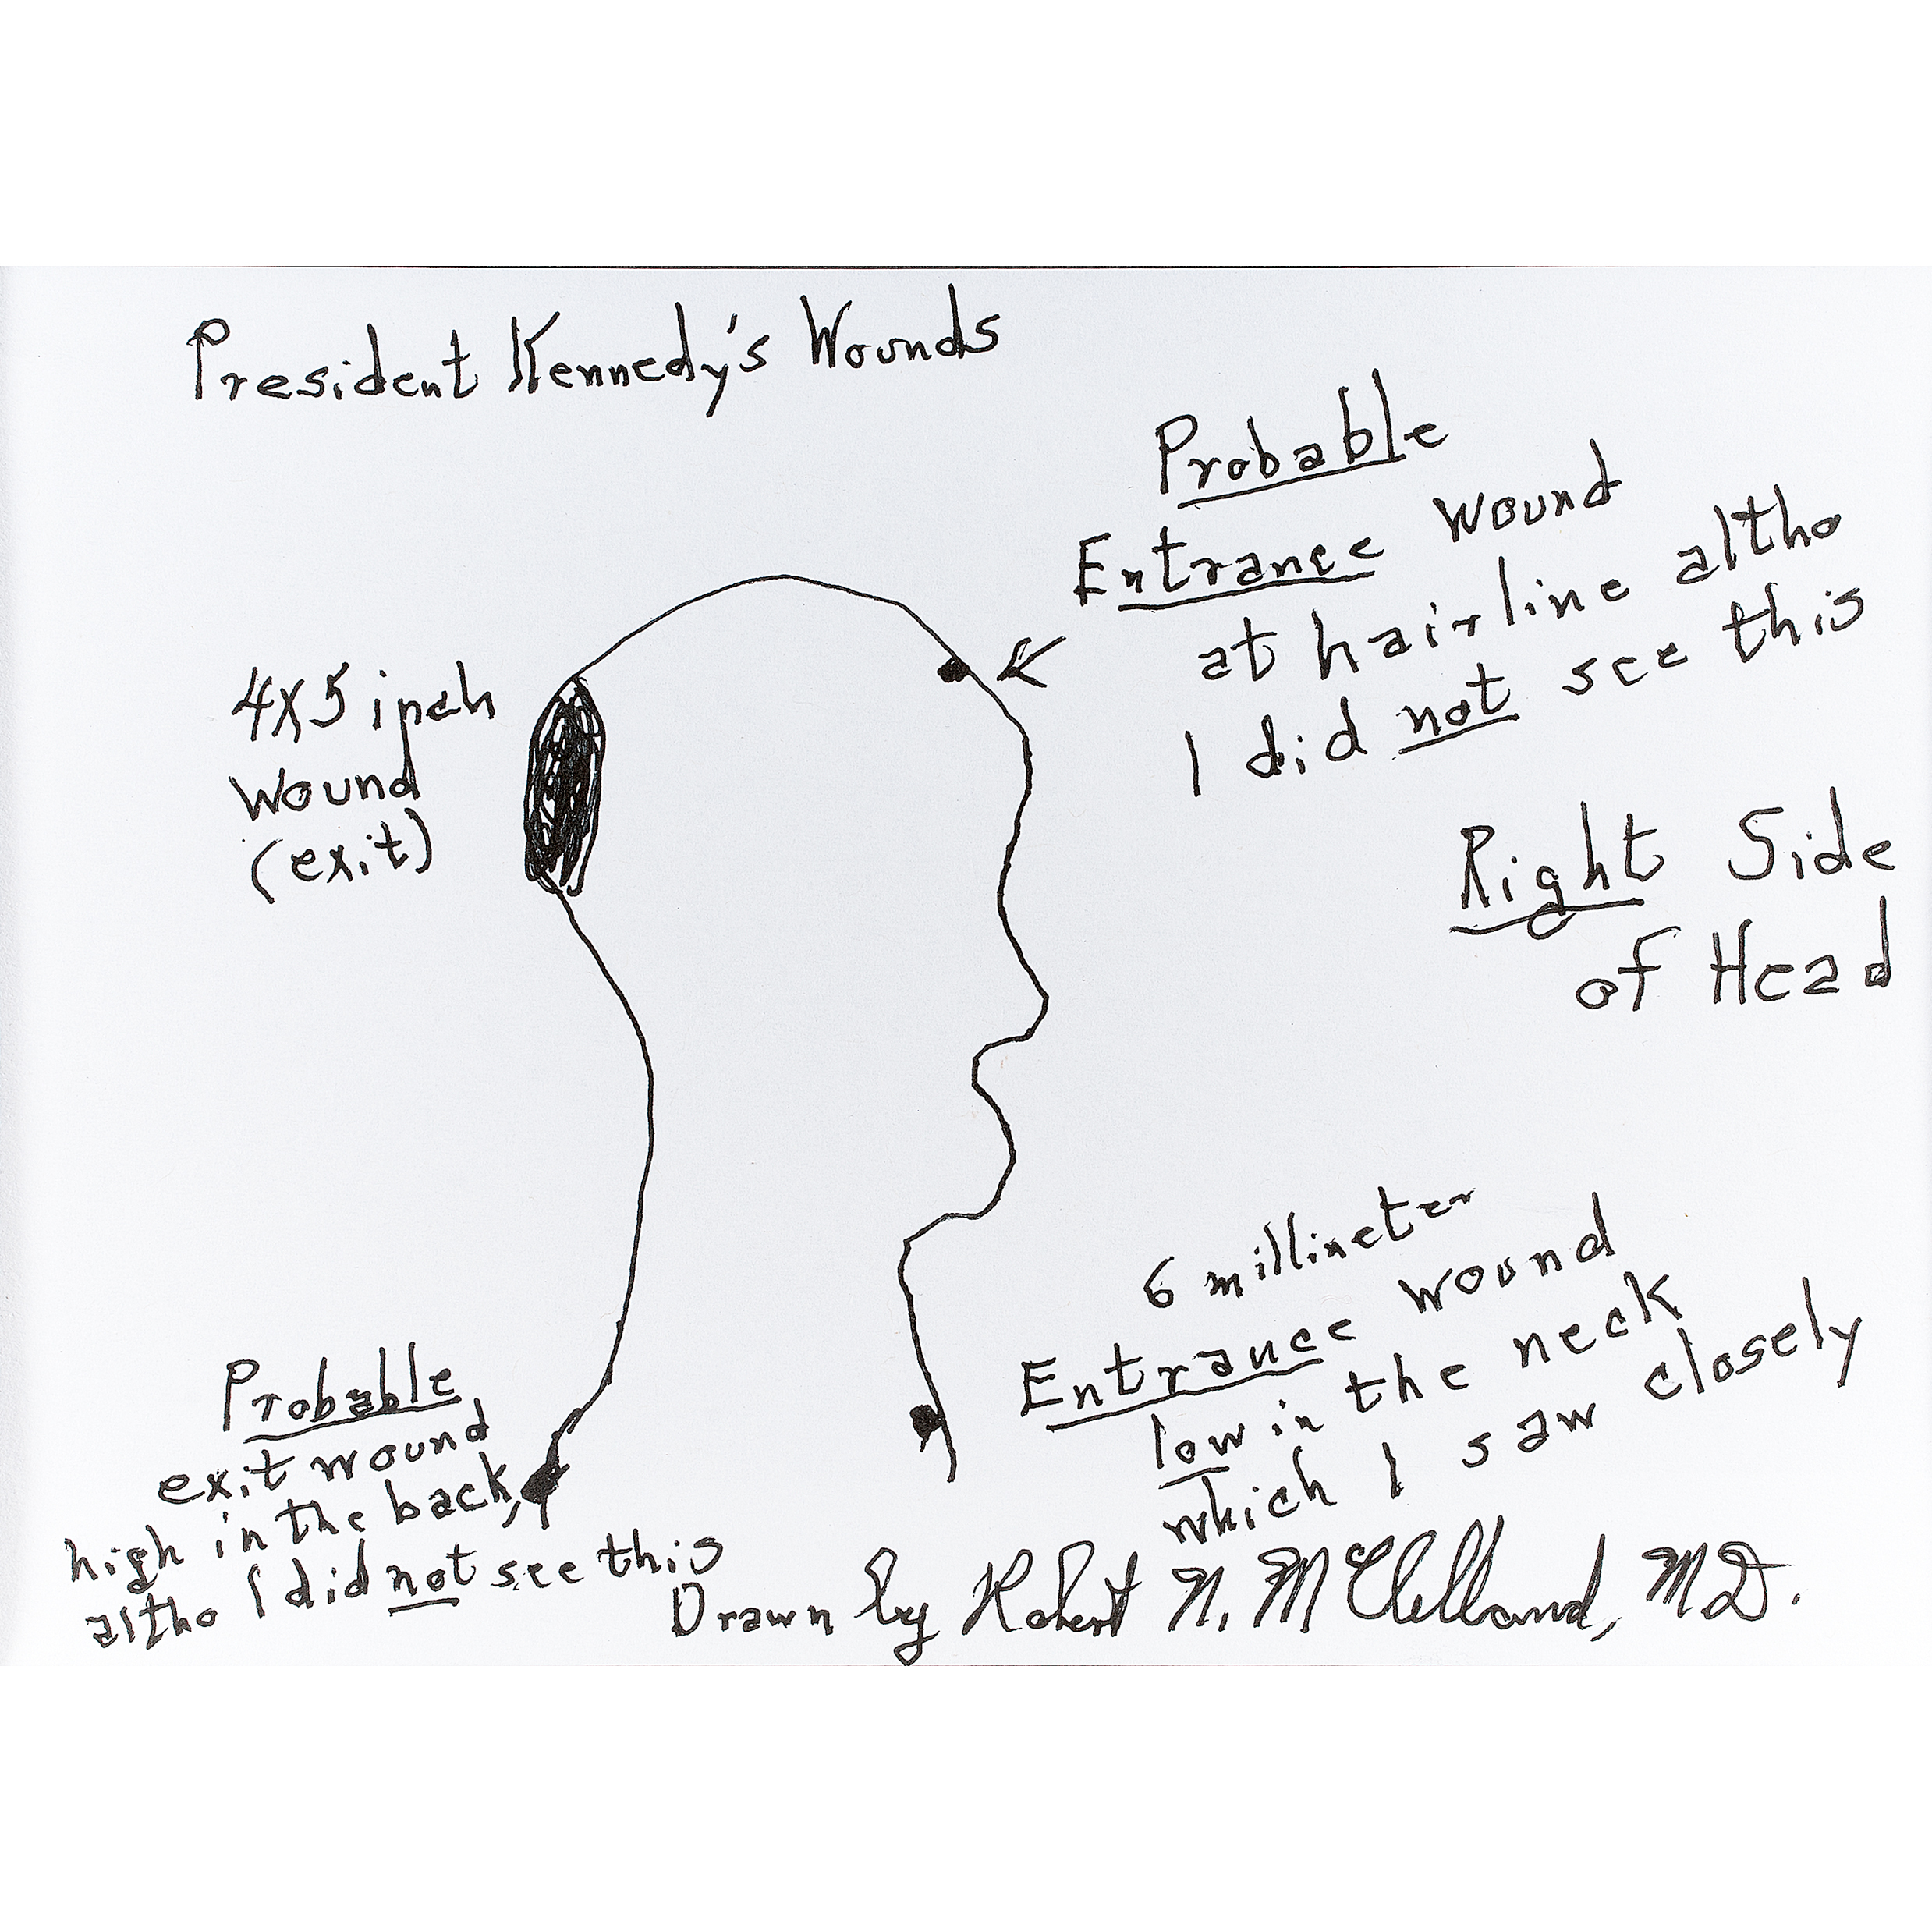 President Kennedy's Wounds
Probable
Entrance wound
at hairline altho
I did not see this
4x5 inch
Wound
(exit)
Right Side
of Head
6 millimeter
Entrance wound
low in the neck
which I saw closely
Probable
exit wound
high in the back,
altho I did not see this
Drawn by Robert N. McClelland, M.D.